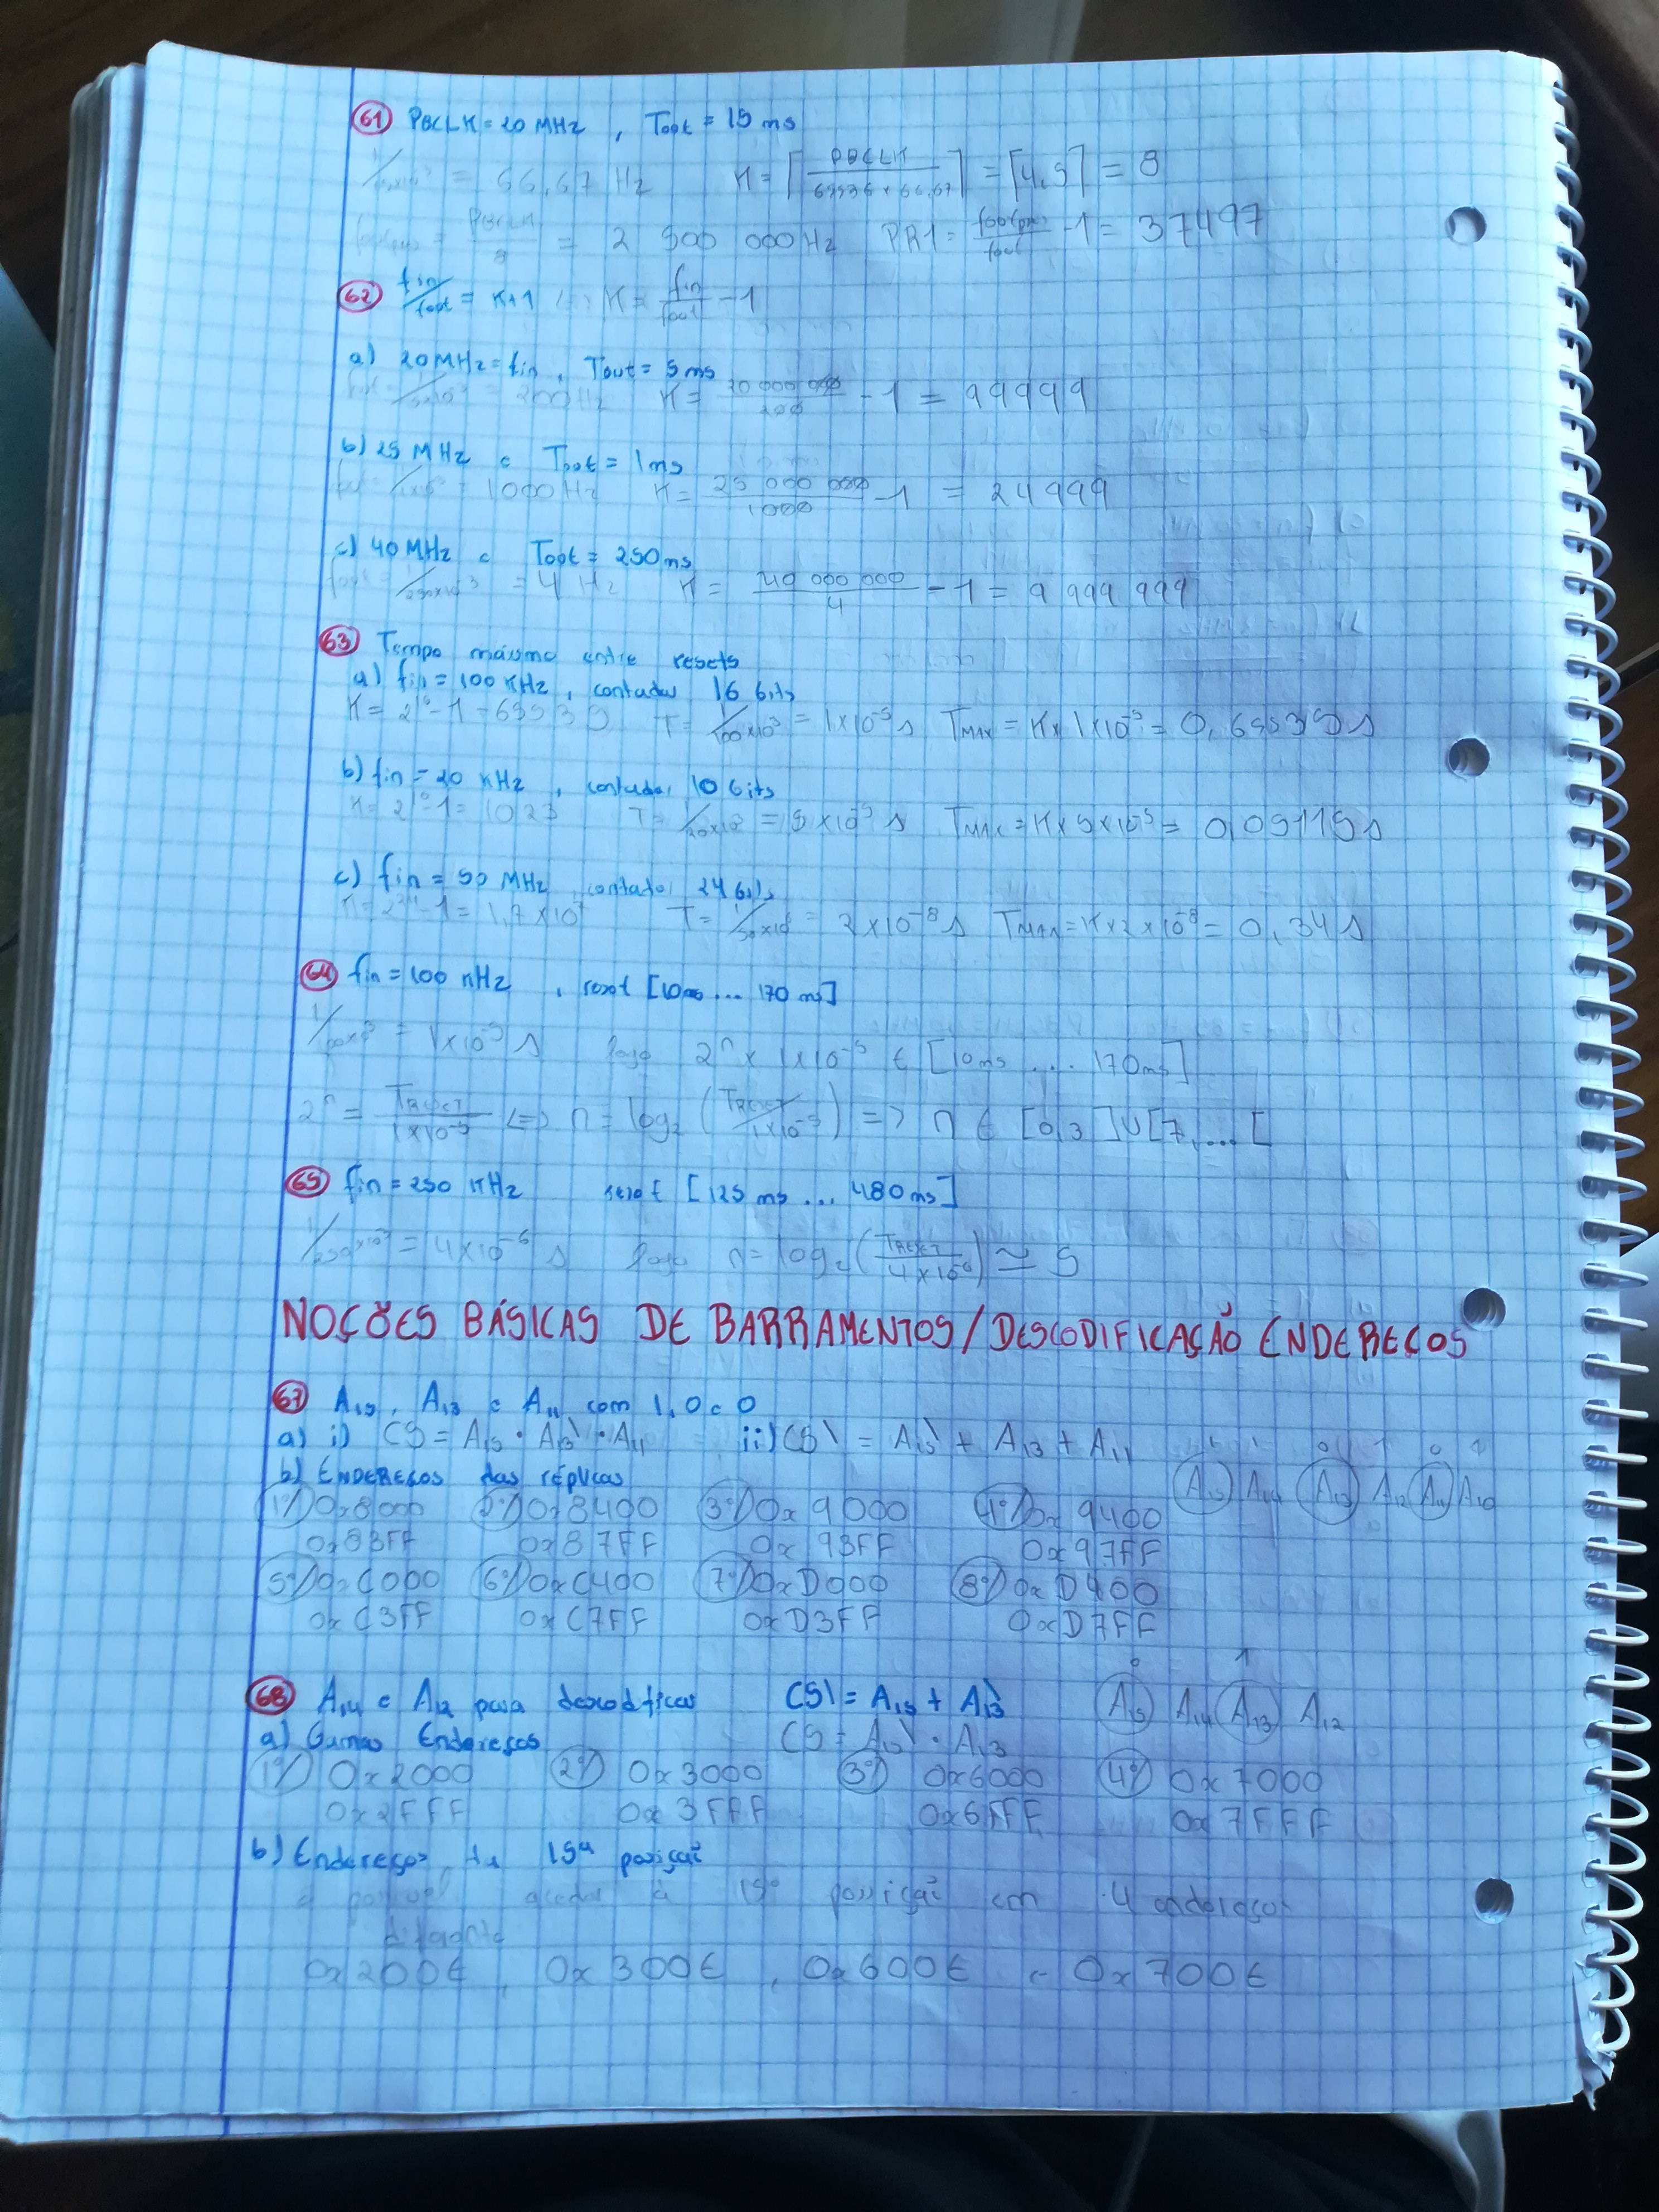 61 PBCLK = 20 MHz , Tout = 15 ms
= 66,67 Hz K = ⌈PBCLK / 65536 × 66,67⌉ = ⌈4,5⌉ = 8
= PBCLK / 8 = 2 500 000 Hz PR1 = foutpre / fout - 1 = 37497
62 fin/fout = K+1 <=> K = fin/fout - 1
a) 20 MHz = fin , Tout = 5 ms
= 200 Hz K = 20 000 000 / 200 - 1 = 99999
b) 25 MHz e Tout = 1 ms
= 1000 Hz K = 25 000 000 / 1000 - 1 = 24999
c) 40 MHz e Tout = 250 ms
= 4 Hz K = 40 000 000 / 4 - 1 = 9 999 999
63 Tempo máximo entre resets
a) fin = 100 KHz , contador 16 bits
K = 2^16 - 1 = 65535 T = 1/100×10^3 = 1×10^-5 s TMAX = K × 1×10^-5 = 0,65535 s
b) fin = 20 KHz , contador 10 bits
K = 2^10 - 1 = 1023 T = 1/20×10^3 = 5×10^-5 s TMAX = K × 5×10^-5 = 0,05115 s
c) fin = 50 MHz , contador 24 bits
K = 2^24 - 1 = 1,7×10^7 T = 1/50×10^6 = 2×10^-8 s TMAX = K × 2×10^-8 = 0,34 s
64 fin = 100 KHz , reset [10ms ... 170 ms]
= 1×10^-5 s logo 2^n × 1×10^-5 ∈ [10ms .... 170ms]
2^n = TRESET / 1×10^-5 <=> n = log2 (TRESET / 1×10^-5) => n ∈ [0,3] U [7,... [
65 fin = 250 KHz reset [125 ms ... 480 ms]
1/250×10^3 = 4×10^-6 s logo n = log2 (TRESET / 4×10^-6) ≃ 5
NOÇÕES BÁSICAS DE BARRAMENTOS/DESCODIFICAÇÃO ENDEREÇOS
67 A15, A13 e A11 com 1,0 e 0
a) i) CS = A15 · A13\ · A11 ii) CS\ = A15\ + A13 + A11
b) ENDEREÇOS das réplicas
1 1 0 1 0 1
A15 A14 A13 A12 A11 A10
1º) 0x8000 2º) 0x8400 3º) 0x9000 4º) 0x9400
0x83FF 0x87FF 0x93FF 0x97FF
5º) 0xC000 6º) 0xC400 7º) 0xD000 8º) 0xD400
0xC3FF 0xC7FF 0xD3FF 0xD7FF
0 1
68 A14 e A12 para descodificar CS\ = A15 + A13\ A15 A14 A13 A12
a) Gamas Endereços CS = A15\ · A13
1º) 0x2000 2º) 0x3000 3º) 0x6000 4º) 0x7000
0x2FFF 0x3FFF 0x6FFF 0x7FFF
b) Endereços da 15ª posição
é possivel aceder à 15ª possição com 4 endereços
diferente
0x200E , 0x300E , 0x600E e 0x700E